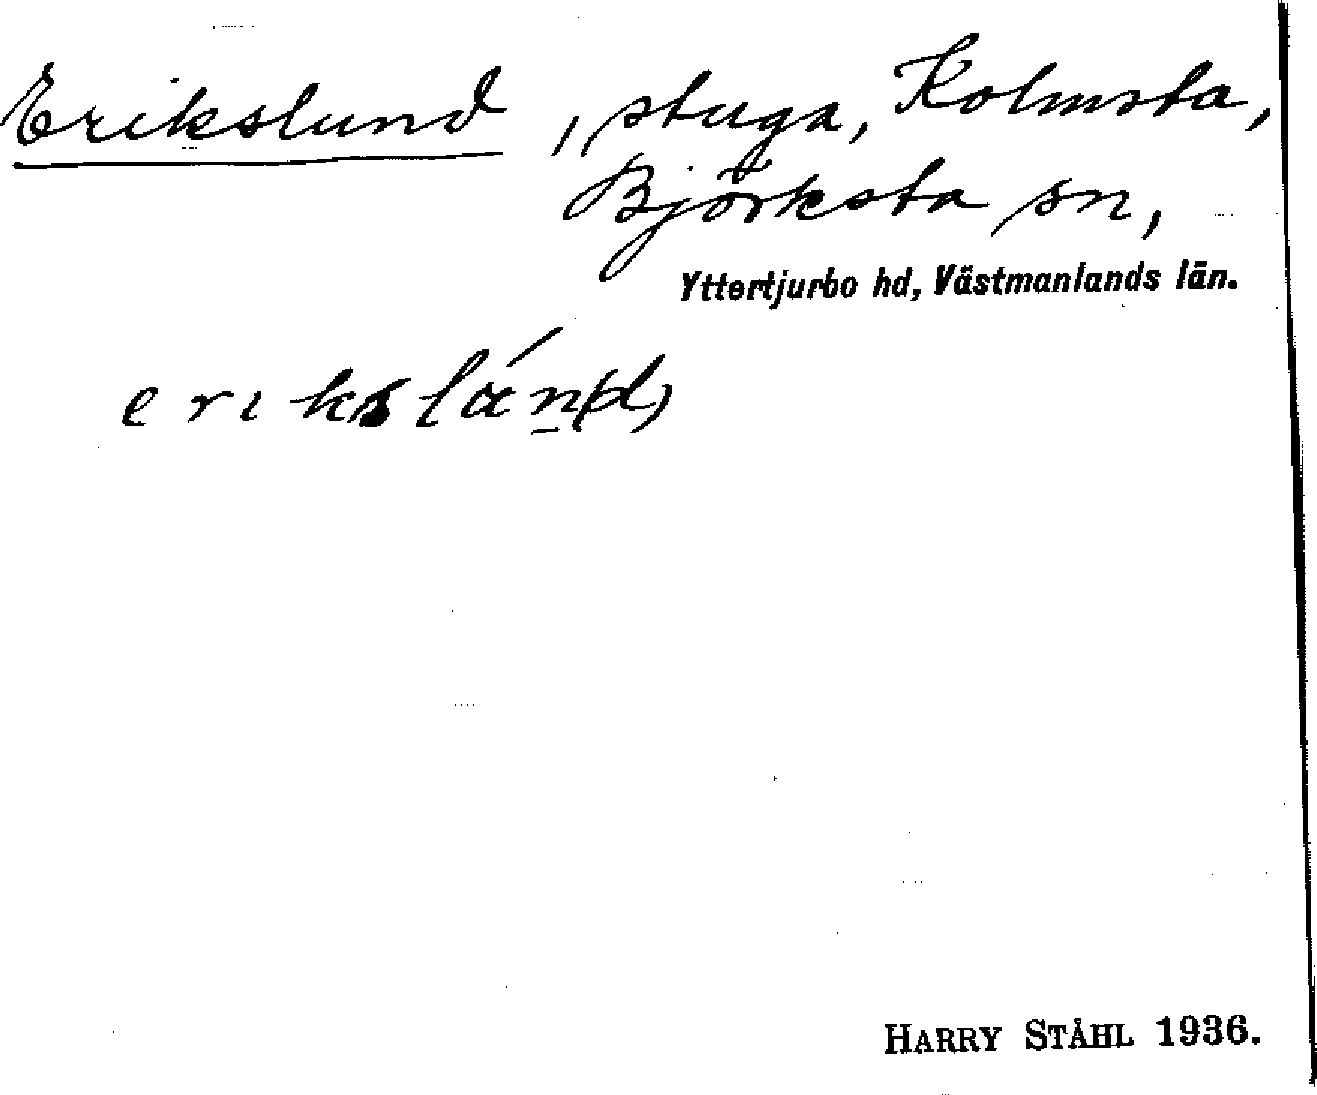 Erikslund, stuga, Kolmsta,
Björksta sn,
Yttertjurbo hd, Västmanlands län.
erikslán(d)
HARRY STÅHL 1936.